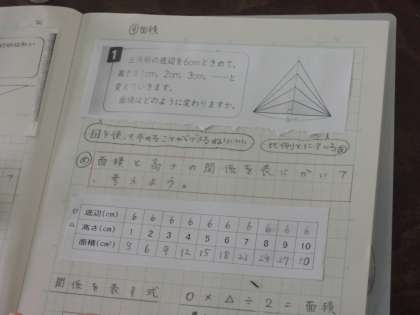 ④面積
1 三角形の底辺を6cmときめて、
高さを1cm、2cm、3cm、……と
変えていきます。
面積はどのように変わりますか。
図を使って求めることができる
比例
め 面積と高さの関係を表にかいて
考えよう。
底辺(cm) 6 6 6 6 6 6 6 6 6 6
高さ(cm) 1 2 3 4 5 6 7 8 9 10
面積(cm²) 3 6 9 12 15 18 21 24 27 30
関係を表す式 ○×△÷2=面積